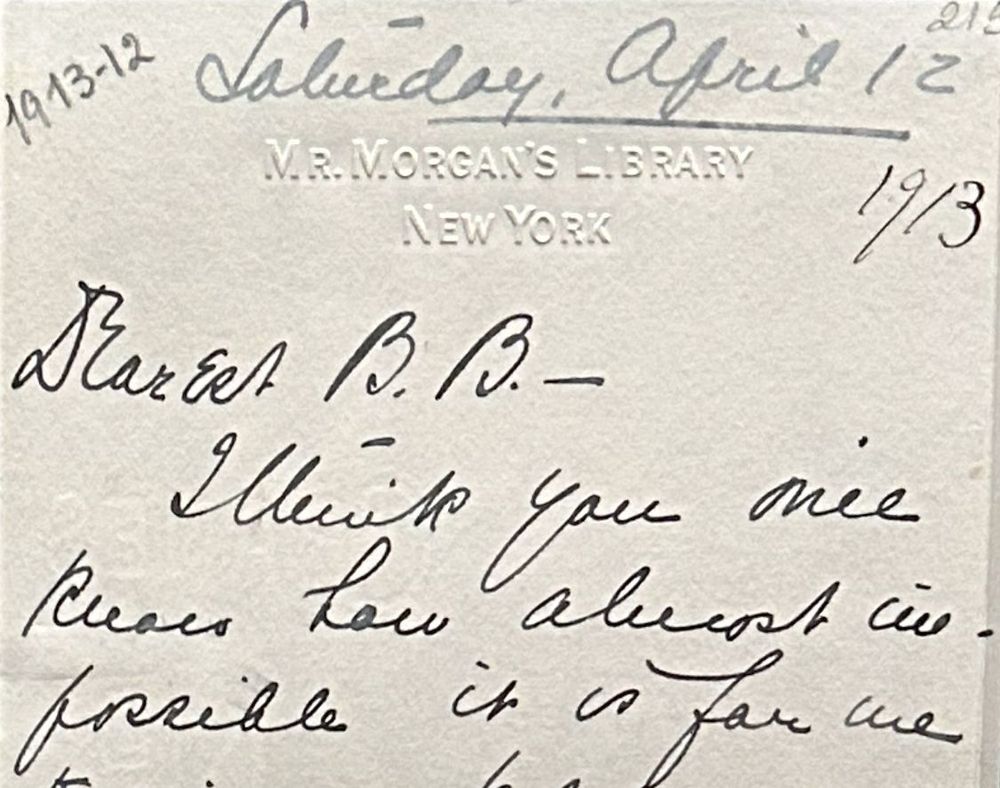 215
1913-12
Saturday, April 12
MR. MORGAN'S LIBRARY
NEW YORK
1913
Dearest B. B. —
I think you will
know how almost im-
possible it is for me